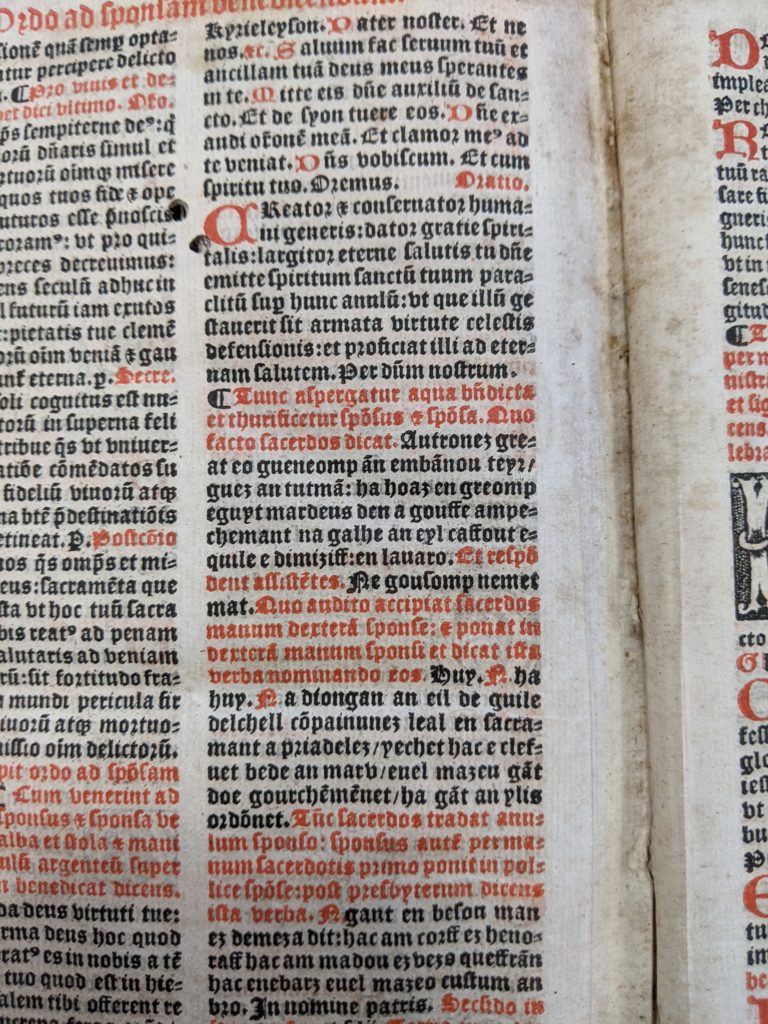 Ordo ad sponsam benedicendum.
sionē quā semꝑ opta-
tur percipere delicto
. ¶ Pro viuis et de-
dici vltimo. Oro.
sempiterne deꝰ: q̄
orū dn̄aris simul et
rtuorū oīmqꝫ misere
quos tuos fide ⁊ ope
uturos esse p̄noscis
oramꝰ: vt pro qui-
preces decreuimus:
ens seculū adhuc in
l futurū iam exutos
t: pietatis tue clemē
orū oīm veniā ⁊ gau
eterna. p. Secre.
soli cognitus est nu-
torū in superna feli
tribue q̄s vt vniuer-
cōmēdatos su
fideliū viuorū atqꝫ
na btē p̄destinatiōis
etineat. P. Postcōio
nos q̄s omp̄s et mi-
eus: sacramēta que
sta vt hoc tuū sacra
bis reatꝰ ad penam
alutaris ad veniam
rū: sit fortitudo fra-
mundi pericula fir
iuorū atqꝫ mortuo-
issio oīm delictorū.
pit ordo ad spōsam
¶ Cum venerint ad
sponsus ⁊ sponsa ve
alba et stola ⁊ mani
ulū argenteū super
benedicat dicens.
da deus virtuti tue:
rma deus hoc quod
ratꝰ es in nobis a tē
tuo quod est in hie-
alem tibi offerent re
Kyrieleyson. Pater noster. Et ne
nos. ⁊c. Saluum fac seruum tuū et
ancillam tuā deus meus sperantes
in te. Mitte eis dn̄e auxiliū de san-
cto. Et de syon tuere eos. Dn̄e ex-
audi orōnē meā. Et clamor meꝰ ad
te veniat. Dn̄s vobiscum. Et cum
spiritu tuo. Oremus. Oratio.
CReator ⁊ conseruator huma-
ni generis: dator gratie spiri-
talis: largitor eterne salutis tu dn̄e
emitte spiritum sanctū tuum para-
clitū suꝑ hunc anulū: vt que illū ge
stauerit sit armata virtute celestis
defensionis: et proficiat illi ad eter-
nam salutem. Per dūm nostrum.
¶ Tunc aspergatur aqua bn̄dicta
et thurificetur spōsus ⁊ spōsa. Quo
facto sacerdos dicat. Autronez gre-
at eo gueneomp ān embānou teyr/
guez an tutmā: ha hoaz en greomp
eguyt mardeus den a gouffe ampe-
chemant na galhe an eyl caffout e-
quile e dimiziff: en lauaro. Et respō
dent assistētes. Ne gousomp nemet
mat. Quo audito accipiat sacerdos
manum dexterā sponse: ⁊ ponat in
dexterā manum sponsi et dicat ista
verba nominando eos. Huy. N. ha
huy. N. a diongan an eil de guile
delchell cōpainunez leal en sacra-
mant a priadelez/ yechet hac e clef-
uet bede an marv/ euel mazeu gāt
doe gourchēmēnet/ ha gāt an ylis
ordōnet. Tūc sacerdos tradat anu-
lum sponso: sponsus autē per ma-
num sacerdotis primo ponit in pol-
lice spōse: post presbyterum dicens
ista verba. N. gant en beson man
ez demeza dit: hac am corff ez heno-
raff hac am madou ez vezo queffrān
hac enebarz euel mazeo custum an
bro. In nomine patris. Secūdo in
implea
Per ch
tuū ra
sare fi
gneris
hunc f
vt in
senesc
gitud
per m
nistra
et sig
cens.
lebra
cto
fess
glo
iest
vt
bu
P
tu
im
be